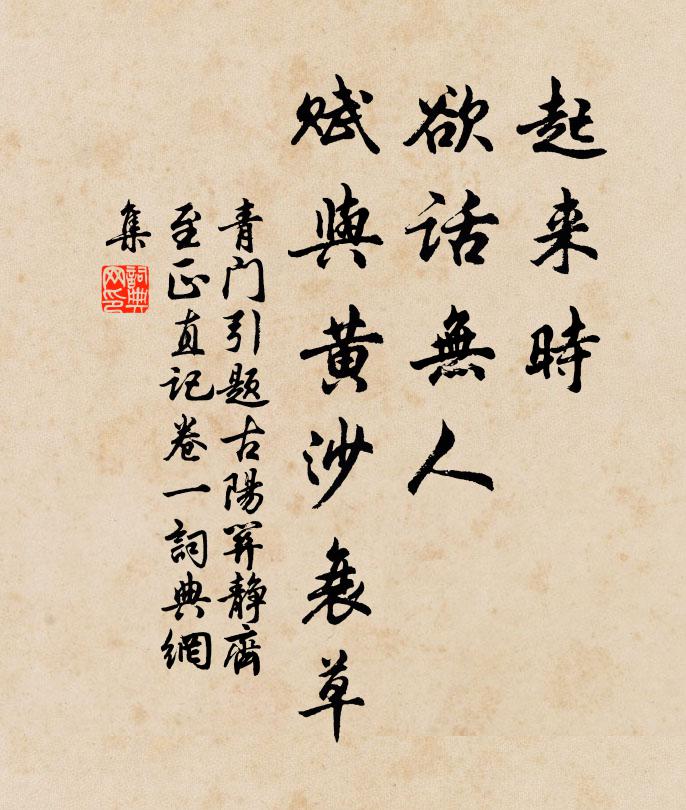 起来時
欲話無人
赋與黄沙衰草
青门引题古陽関静齋
至正直记卷一詞典網
集
詞典網印